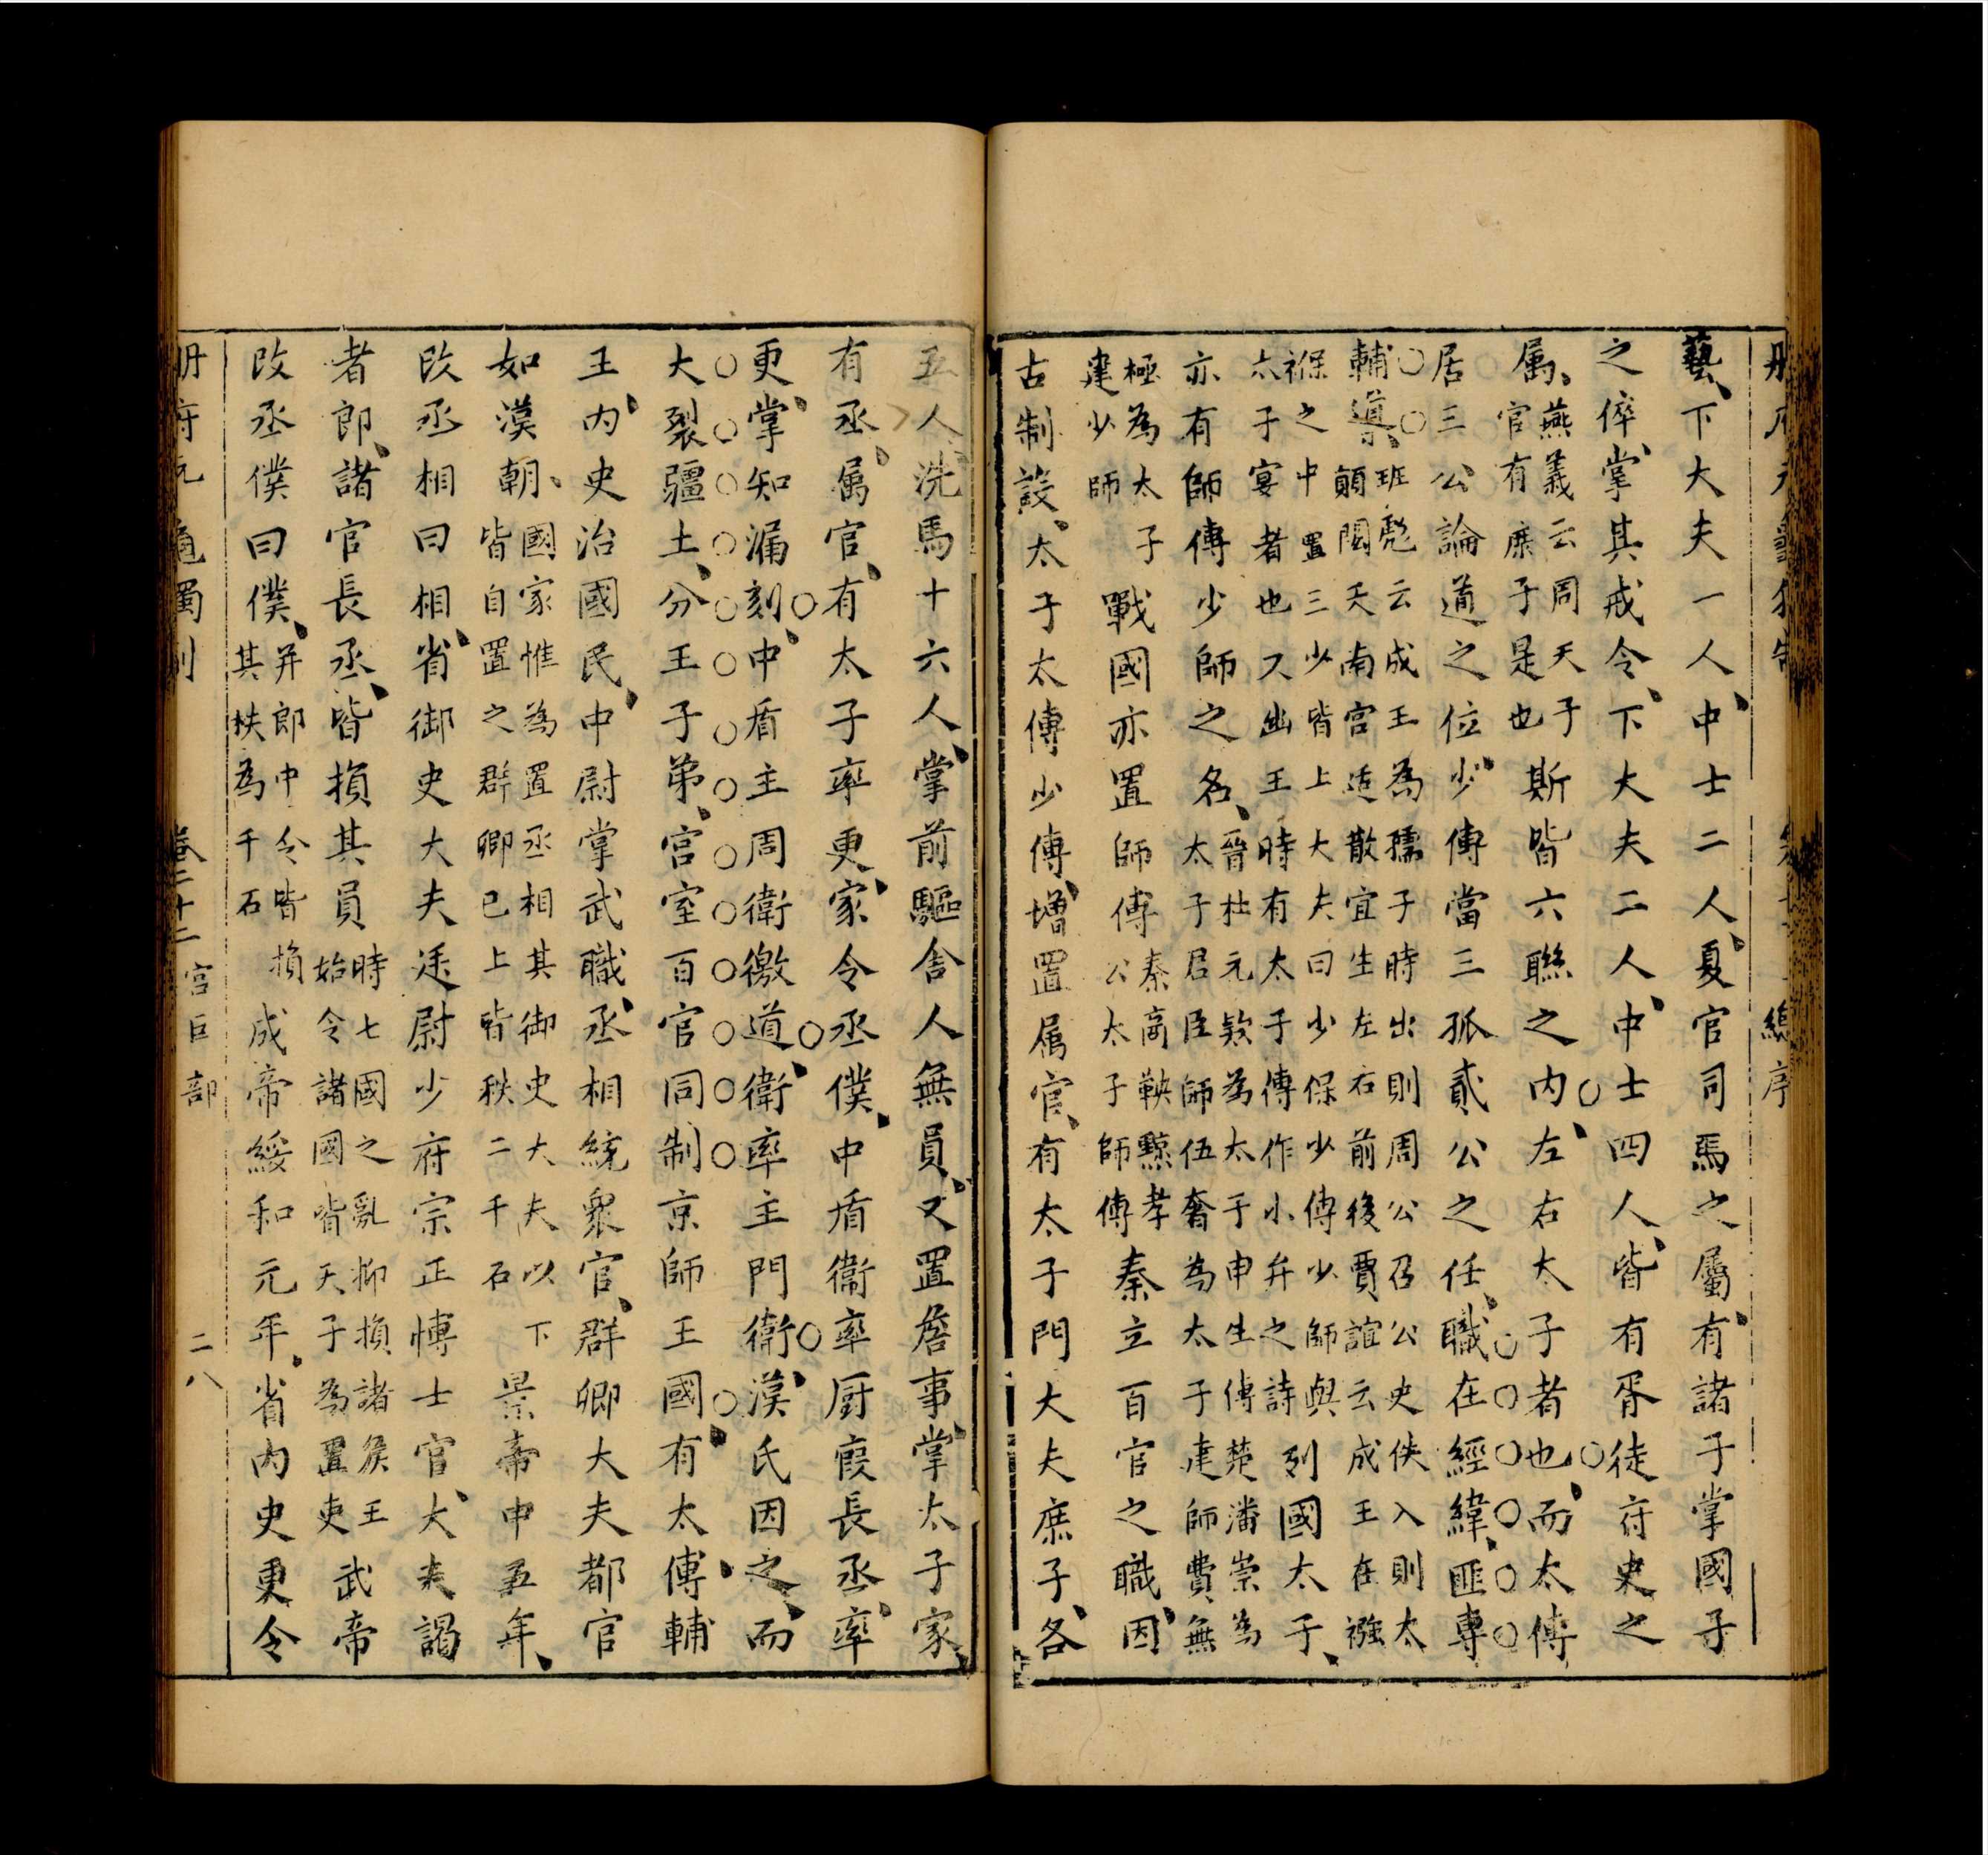 藝下大夫一人中士二人夏官司馬之屬有諸子掌國子
之倅掌其戒令下大夫二人中士四人皆有胥徒府史之
属燕義云周天子官有庶子是也斯皆六聯之内左右太子者也而太傅
居三公論道之位少傅當三孤貳公之任職在經緯匪專
輔導班彪云成王為孺子時出則周公召公史佚入則太顛閎夭南宫适散宜生左右前後賈誼云成王在襁
褓之中置三少皆上大夫曰少保少傅少師與太子宴者也又幽王時有太子傅作小弁之詩列國太子
亦有師傅少師之名晉杜元欵為太子申生傅楚潘崇為太子君臣師伍奢為太子建師費無
極為太子建少師戰國亦置師傅秦商鞅黥孝公太子師傅秦立百官之職因
古制設太子太傅少傅增置属官有太子門大夫庶子各
五人洗馬十六人掌前驅舍人無員又置詹事掌太子家
有丞属官有太子率更家令丞僕中盾衞率厨廄長丞率
更掌知漏刻中盾主周衛徼道衛率主門衛漢氏因之而
大裂疆土分王子弟宫室百官同制京師王國有太傅輔
王内史治國民中尉掌武職丞相統衆官群卿大夫都官
如漢朝國家惟為置丞相其御史大夫以下皆自置之群卿已上皆秩二千石景帝中五年
改丞相曰相省御史大夫廷尉少府宗正博士官大夫謁
者郎諸官長丞皆損其員時七國之亂抑損諸侯王始令諸國皆天子為置吏武帝
改丞僕曰僕并郎中令皆損其秩為千石成帝綏和元年省内史更令
册府元龜獨制 卷二十二 宫臣部 二八